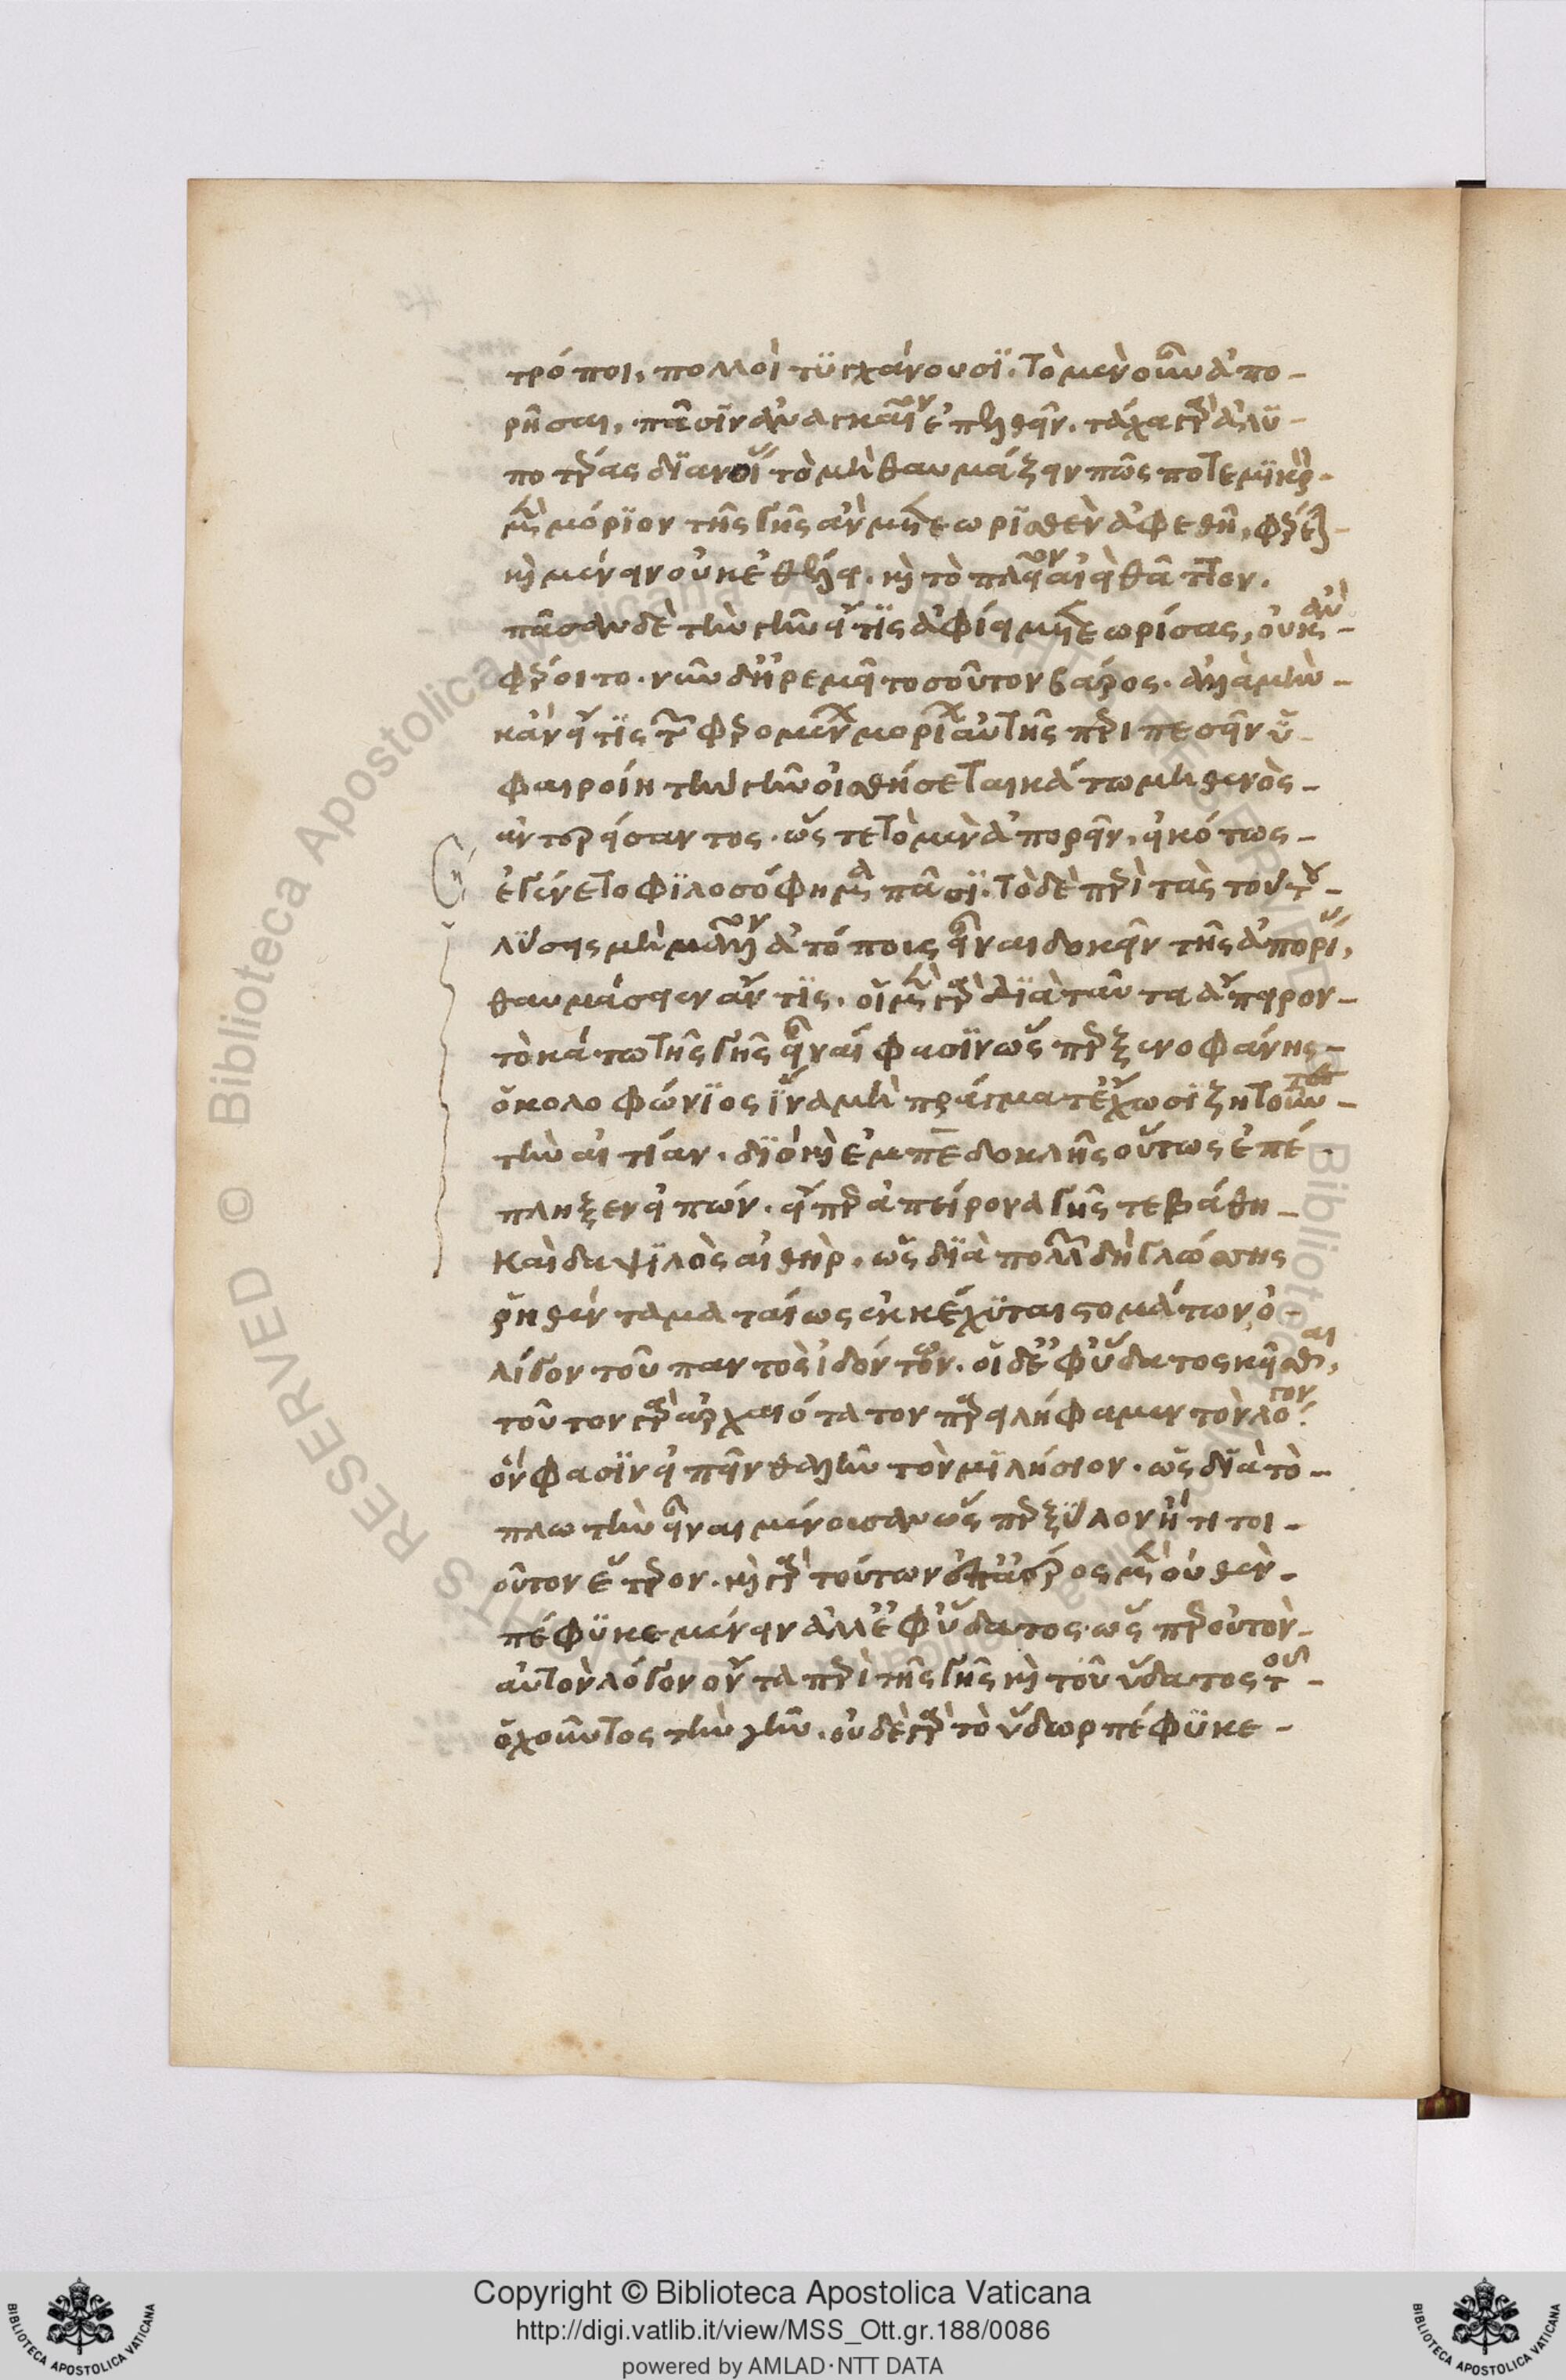 τρόποι, πολλοὶ τϋγχάνουσϊ. Τὸ μὲν οὖν ἀπο-
ρῆσαι, πᾶσϊν ἀναγκαῖον ἐπελθεῖν. τάχα γὰρ ἀλϋ-
ποτέρας δϊανοίας τὸ μὴ θαυμάζειν πῶς ποτε μϊκρὸν
μὲν μόρϊον τῆς γῆς ἂν μετεωρϊσθὲν ἀφεθῆ, φέρεται
καὶ μένειν οὐκ ἐθέλει. καὶ τὸ πλεῖον ἀεὶ θᾶττον.
πᾶσαν δὲ τὴν γῆν εἴ τϊς ἀφίει μετεωρίσας, οὐκ ἂν
φέροιτο. νῦν δ' ἠρεμεῖ τοσοῦτον βάρος. ἀλλὰ μὴν
κἂν εἴ τϊς τῶν φερομένων μορίων αὐτῆς πρὶ πεσεῖν ὑ-
φαιροίη τὴν γῆν οἰσθήσεται κάτω μηθενὸς
ἀντερείσαντος. ὥς τε τὸ μὲν ἀπορεῖν, εἰκότως
ἐγένετο φϊλοσόφημα πᾶσϊ. Τὸ δὲ πρὶ τὰς τούτου
λύσεις μὴ μᾶλλον ἀτόποις εἶναι δοκεῖν τῆς ἀπορίας,
θαυμάσειεν ἄν τϊς. οἱ μὲν γὰρ δϊὰ ταῦτα ἄπειρον
τὸ κάτω τῆς γῆς εἶναί φασϊν ὥσπερ ξενοφάνης
ὁ κολοφώνϊος ἵνα μὴ πράγματ' ἔχωσϊ ζητοῦντες
τὴν αἰτίαν. δϊὸ καὶ ἐμπεδοκλῆς οὕτως ἐπέ-
πληξεν εἰπών. εἴπερ ἀπείρονα γῆς τε βάθη
Καὶ δαψϊλὸς αἰθήρ. ὡς δϊὰ πολλῶν δὴ γλώσσης
ῥηθέντα ματαίως ἐκκέχϋται στομάτων ὀ-
λίγον τοῦ παντὸς ἰδόντων. οἱ δ' ἐφ' ὕδατος κεῖσθαι,
τοῦτον γὰρ ἀρχαιότατον παρειλήφαμεν τὸν λόγον
ὅν φασϊν εἰπεῖν θαλῆν τὸν μϊλήσιον. ὡς δϊὰ τὸ
πλωτὴν εἶναι μένουσαν ὥσπερ ξύλον ἤ τι τοι-
οῦτον ἕτερον. καὶ γὰρ τούτων ἐπ' ἀέρος μὲν οὐθὲν
πέφϋκε μένειν ἀλλ' ἐφ' ὕδατος. ὥσπερ οὐ τὸν
αὐτὸν λόγον ὄντα πρὶ τῆς γῆς καὶ τοῦ ὕδατος τοῦ
ὀχοῦντος τὴν γῆν. οὐδὲ γὰρ τὸ ὕδωρ πέφϋκε
Copyright © Biblioteca Apostolica Vaticana
http://digi.vatlib.it/view/MSS_Ott.gr.188/0086
powered by AMLAD·NTT DATA